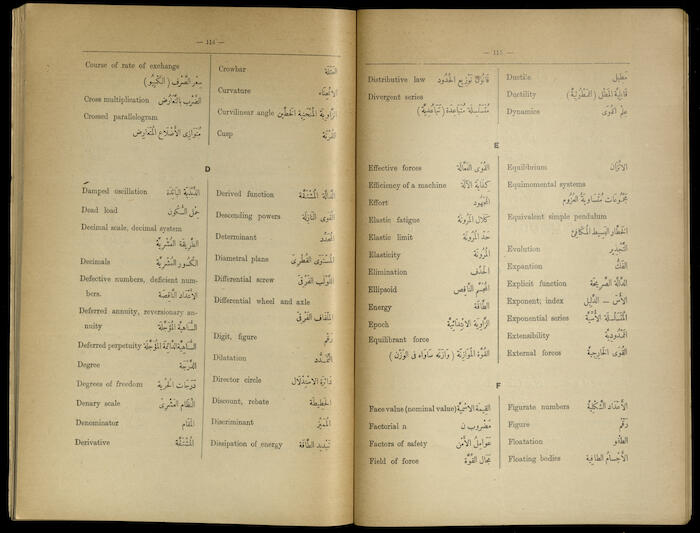 — 114 —
Course of rate of exchange
سِعْر الصَّرْف (الكَمْبِيُو)
Cross multiplication الضَّرْب بالتَّعَارُض
Crossed parallelogram
مُتَوَازِى الأَضْلَاع المُتَعَارِض
Crowbar العَتَلَة
Curvature الانْحِنَاء
Curvilinear angle الزَّاوِيَة المُنْحَنِيَة الخَطَّيْن
Cusp
D
Damped oscillation
Dead load حِمْل السُّكُون
Decimal scale, decimal system
الطَّرِيقَة العَشْرِيَّة
Decimals الكُسُور العَشْرِيَّة
Defective numbers, deficient num-
bers. الأَعْدَاد النَّاقِصَة
Deferred annuity, reversionary an-
nuity السَّنَاهِيَّة المُؤَجَّلَة
Deferred perpetuity السَّنَاهِيَّة الدَّائِمَة المُؤَجَّلَة
Degree الدَّرَجَة
Degrees of freedom دَرَجَات الحُرِّيَة
Denary scale النِّظَام العَشْرِى
Denominator المَقَام
Derivative المُشْتَقَّة
Derived function الدَّالَّة المُشْتَقَّة
Descending powers القُوَى النَّازِلَة
Determinant المُحَدِّد
Diametral plane المُسْتَوِى القُطْرِى
Differential screw اللَّوْلَب الفَرْقِى
Differential wheel and axle
المِلْفَاف الفَرْقِى
Digit, figure رَقْم
Dilatation التَّمَدُّد
Director circle دَائِرَة الاسْتِدْلَال
Discount, rebate الحَطِيطَة
Discriminant المُمَيِّز
Dissipation of energy تَبْدِيد الطَّاقَة
— 115 —
Distributive law قَانُون تَوْزِيع الحُدُود
Divergent series
مُتَسَلْسِلَة مُتَبَاعِدَة (تَبَاعُدِيَّة)
Ductile مَطِيل
Ductility قَابِلِيَّة المَطْل (المَطُولِيَّة)
Dynamics عِلْم القُوَى
E
Effective forces القُوَى الفَعَّالَة
Efficiency of a machine كِفَايَة الآلَة
Effort المَجْهُود
Elastic fatigue كَلَال المُرُونَة
Elastic limit حَدّ المُرُونَة
Elasticity المُرُونَة
Elimination الحَذْف
Ellipsoid المُجَسَّم النَّاقِص
Energy الطَّاقَة
Epoch الزَّاوِيَة الابْتِدَائِيَّة
Equilibrant force
القُوَّة المُوَازِنَة (وَازَنَه سَاوَاه فى الوَزْن)
Equilibrium الاتِّزَان
Equimomental systems
مَجْمُوعَات مُتَسَاوِيَة العُزُوم
Equivalent simple pendulum
الخَطَّار البَسِيط المُكَافِئ
Evolution التَّجْذِير
Expantion الفَكّ
Explicit function الدَّالَّة الصَّرِيحَة
Exponent; index الأُسّ – الدَّلِيل
Exponential series المُتَسَلْسِلَة الأُسِّيَّة
Extensibility المَمْدُودِيَّة
External forces القُوَى الخَارِجِيَّة
F
Face value (nominal value) القِيمَة الاسْمِيَّة
Factorial n مَضْرُوب ن
Factors of safety عَوَامِل الأَمْن
Field of force مَجَال القُوَّة
Figurate numbers الأَعْدَاد الشَّكْلِيَّة
Figure رَقْم
Floatation الطَّفْو
Floating bodies الأَجْسَام الطَّافِيَة